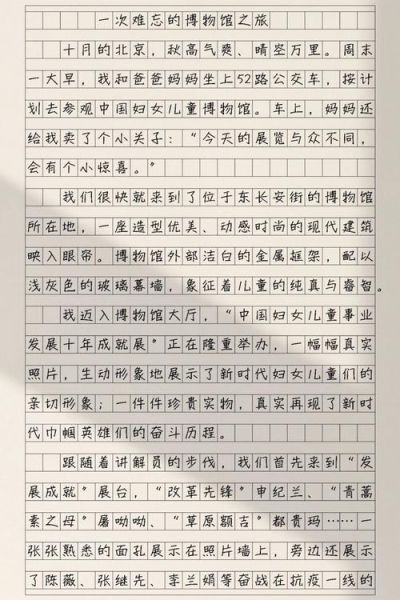 一次难忘的博物馆之旅
十月的北京，秋高气爽、晴空万里。周末
一大早，我和爸爸妈妈坐上52路公交车，按计
划去参观中国妇女儿童博物馆。车上，妈妈还
给我卖了个小关子：“今天的展览与众不同，
会有个小惊喜。”
我们很快就来到了位于东长安街的博物馆
所在地，一座造型优美、动感时尚的现代建筑
映入眼帘。博物馆外部洁白的金属框架，配以
浅灰色的玻璃幕墙，象征着儿童的纯真与睿智。
我迈入博物馆大厅，“中国妇女儿童事业
发展十年成就展”正在隆重举办，一幅幅真实
照片，生动形象地展示了新时代妇女儿童们的
亲切形象；一件件珍贵实物，真实再现了新时
代巾帼英雄们的奋斗历程。
跟随着讲解员的步伐，我们首先来到“发
展成就”展台，“改革先锋”申纪兰、“青蒿
素之母”屠呦呦、“草原额吉”都贵玛……一
张张熟悉的面孔展示在照片墙上，旁边还展示
了陈薇、张继先、李兰娟等奋战在抗疫一线的